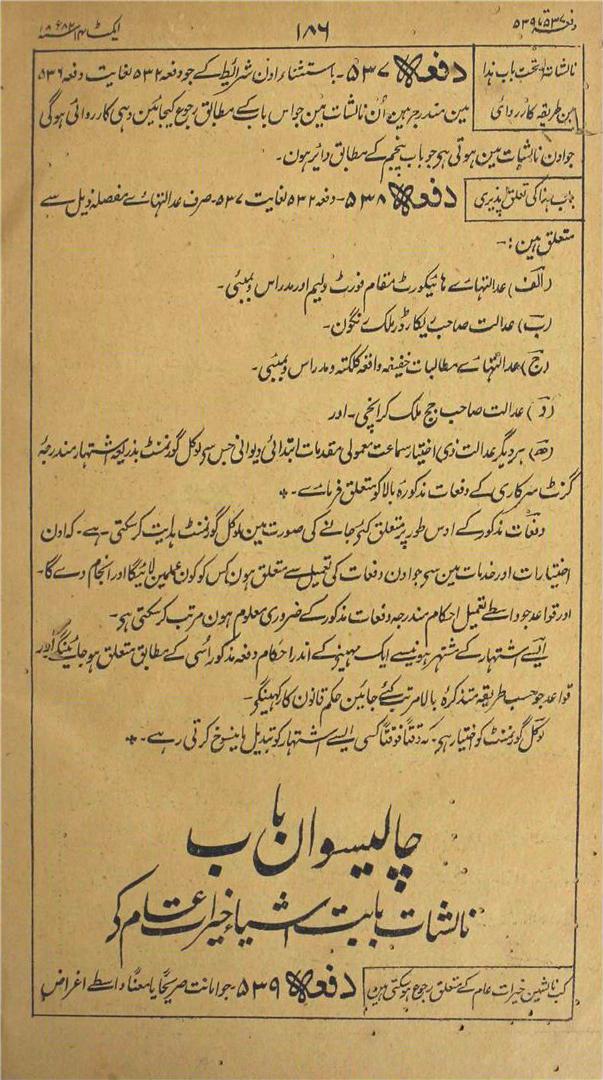 دفعہ ۵۳۷ و ۵۳۹
۱۸۶
ایکٹ ۱۴ سنہ ۱۸۸۲ع
نالشات تحت باب ہذا
مین طریقہ کارروائی
دفعہ ۵۳۷۔ باستثناء اون شرائط کے جو دفعہ ۵۳۲ لغایت دفعہ ۵۳۶
مین مندرج ہین اُن نالشات مین جو اس باب کے مطابق رجوع کیجائین وہی کارروائی ہوگی
جو اون نالشات مین ہوتی ہی جو باب پنجم کے مطابق دائر ہون۔
باب ہذا کی تعلق پذیری
دفعہ ۵۳۸۔ دفعہ ۵۳۲ لغایت ۵۳۷۔ صرف عدالتہاے مفصلہ ذیل سے
متعلق ہین :۔
(الف) عدالتہاے ہائیکورٹ مقام فورٹ ولیم اور مدراس و بمبئی۔
(ب) عدالت صاحب ریکارڈر ملک رنگون۔
(ج) عدالتہاے مطالبات خفیفہ واقعہ کلکتہ و مدراس و بمبئی۔
(د) عدالت صاحب جج ملک کرانچی۔ اور
(ھ) ہر دیگر عدالت ذی اختیار سماعت معمولی مقدمات ابتدائی دیوانی جس سے لوکل گورنمنٹ بذریعہ اشتہار مندرجہ
گزٹ سرکاری کے دفعات مذکورہ بالا کو متعلق فرماے۔ *
دفعات مذکور کے اوس طور پر متعلق کئے جانے کی صورت مین لوکل گورنمنٹ ہدایت کر سکتی ہے۔ کہ اون
اختیارات اور خدمات مین سے جو اون دفعات کی تعمیل سے متعلق ہون کس کو کون عمل مین لائیگا اور انجام دے گا۔
اور قواعد جو واسطے تعمیل احکام مندرجہ دفعات مذکور کے ضروری معلوم ہون مرتب کر سکتی ہی۔
ایسے اشتہار کے مشتہر ہونیسے ایک مہینے کے اندر احکام دفعہ مذکور اُسی کے مطابق متعلق ہو جائینگے اور
قواعد جو حسب طریقہ متذکرہ بالا مرتب کئے جائین حکم قانون کا رکھینگے۔
لوکل گورنمنٹ کو اختیار ہی۔ کہ وقتاً فوقتاً کسی ایسے اشتہار کو تبدیل یا منسوخ کرتی رہے۔ *
چالیسوان باب
نالشات بابت اشیاء خیرات عام کے
کب نالشین خیرات عام کے متعلق رجوع ہو سکتی ہین
دفعہ ۵۳۹۔ جو امانت صریحًا یا معنًا واسطے اغراض